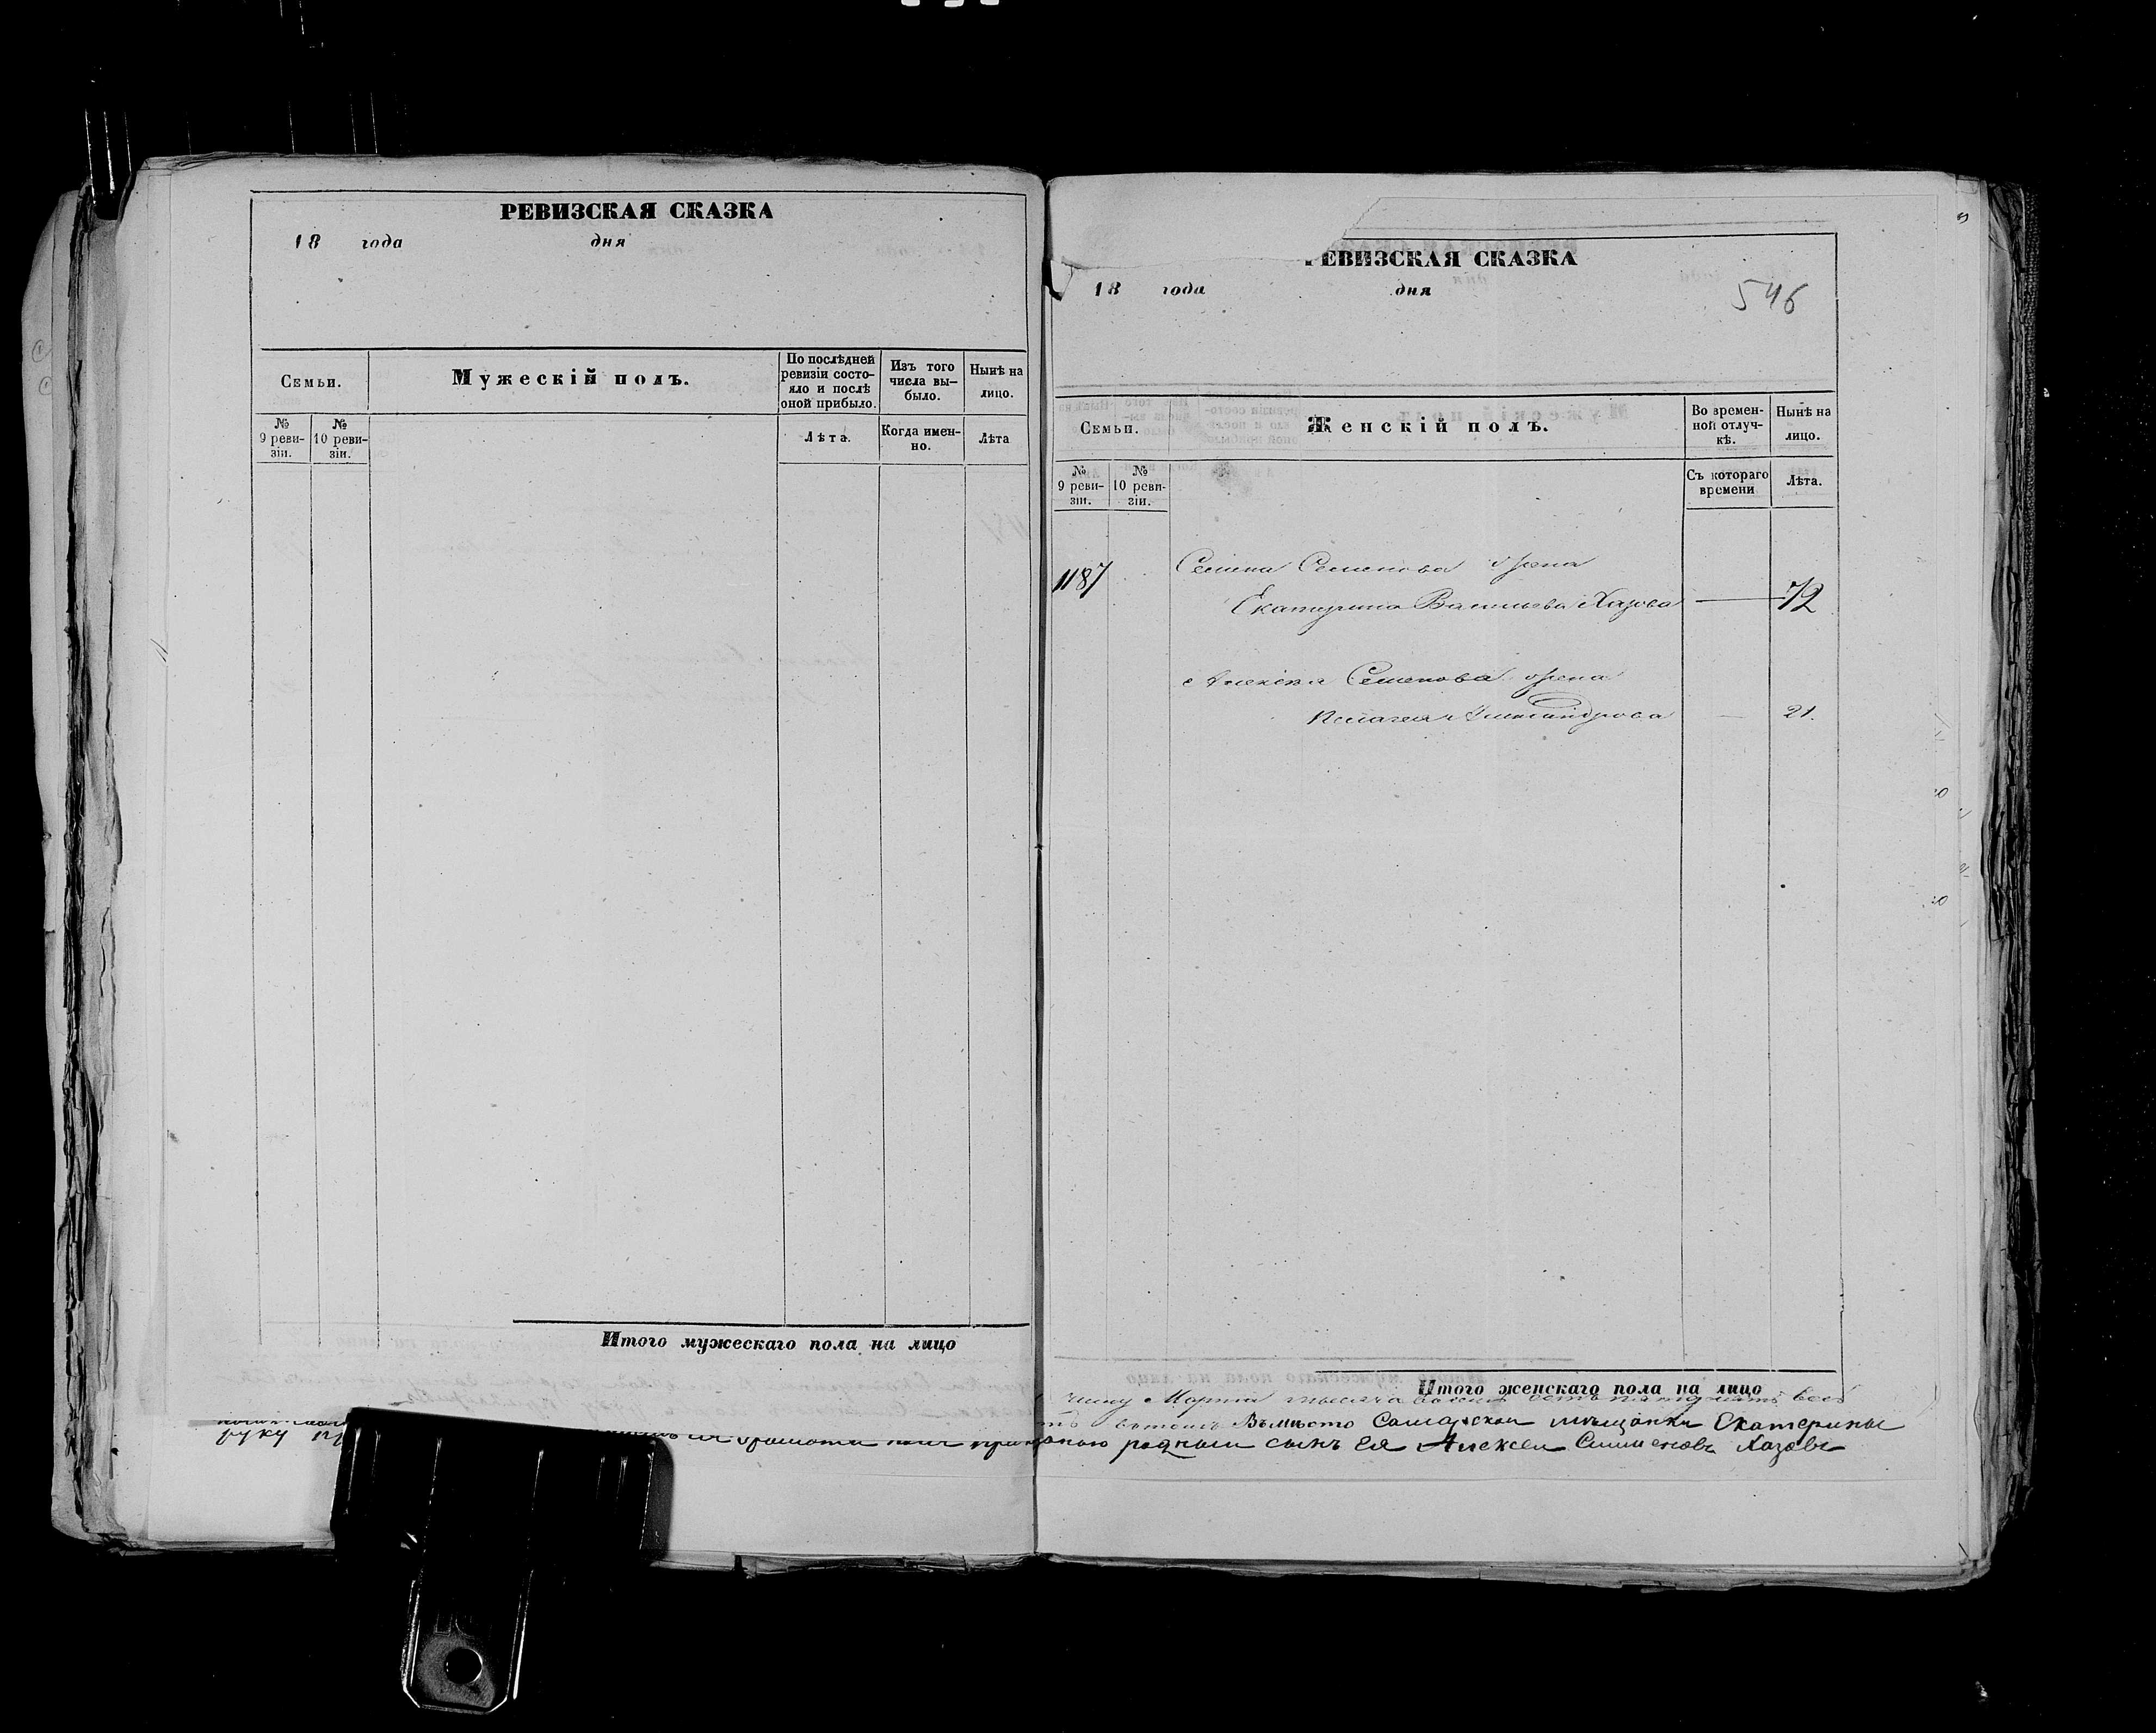 РЕВИЗСКАЯ СКАЗКА
18 года дня
Семьи.
Мужескій полъ.
По послѣдней ревизіи состо-
яло и послѣ
оной прибыло.
Изъ того
числа вы-
было.
Нынѣ на
лицо.
№
9 реви-
зіи.
№
10 реви-
зіи.
Лѣта.
Когда имен-
но.
Лѣта
Итого мужескаго пола на лицо
руку
РЕВИЗСКАЯ СКАЗКА
18 года дня
546
Семьи.
Женскій полъ.
Во времен-
ной отлуч-
кѣ.
Нынѣ на
лицо.
№
9 реви-
зіи.
№
10 реви-
зіи.
Съ котораго
времени
Лѣта.
1187
Семена Семенова жена
Екатерина Васильева Хазова — 72
Алексѣя Семенова жена
Пелагея Александрова — 21.
Итого женскаго пола на лицо
Марта тысяча
Вместо Самарской мещанки Екатерины
родный сынъ Ея Алексей Семеновъ Хазовъ